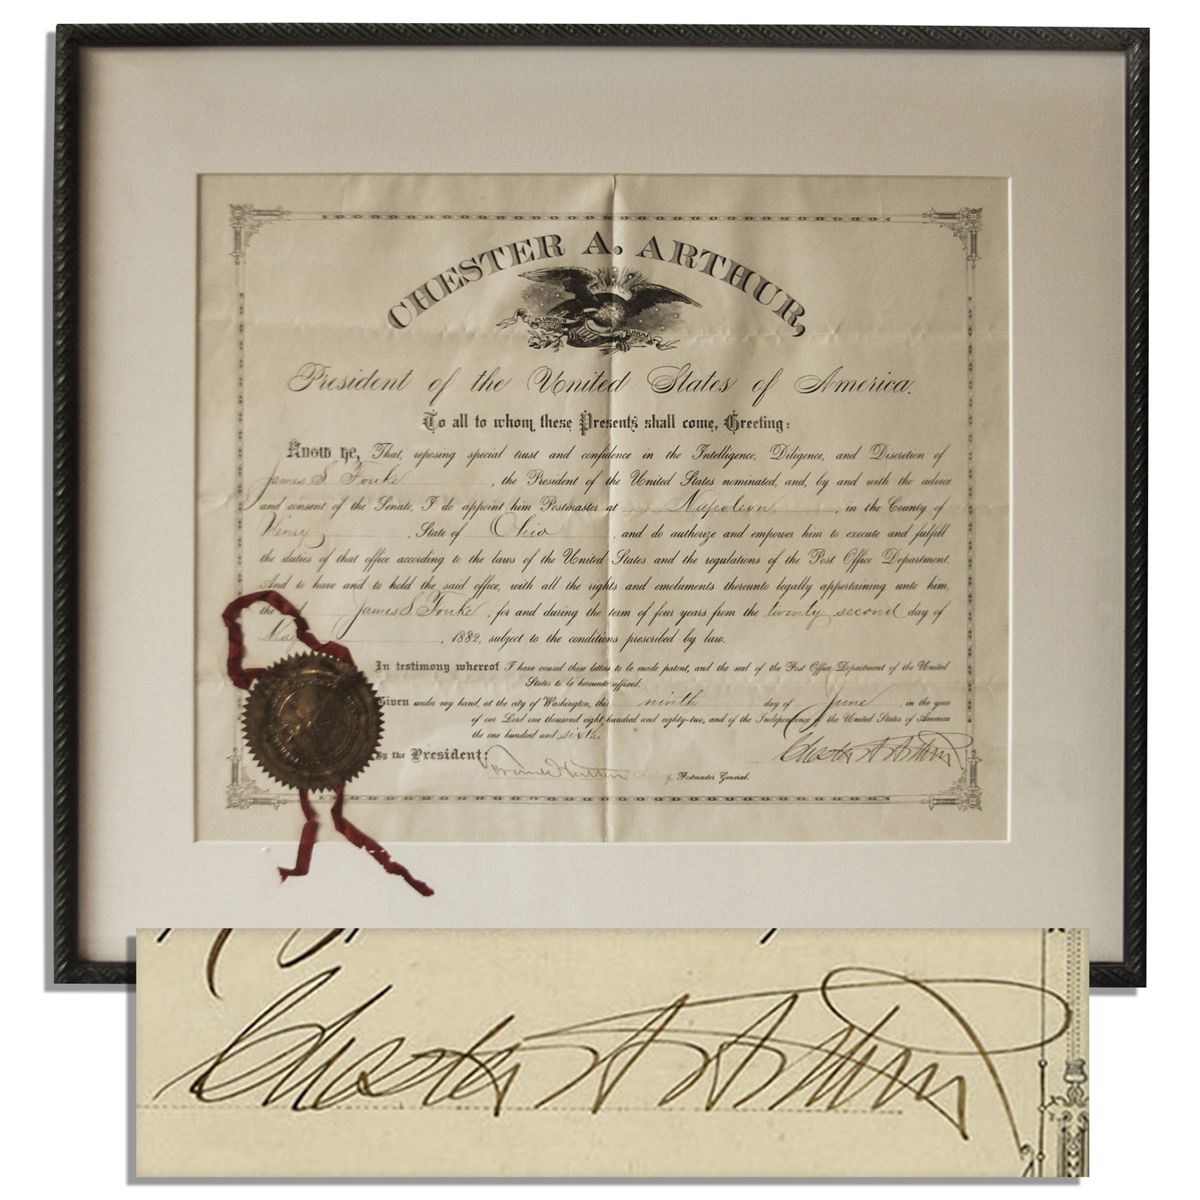 CHESTER A. ARTHUR,
E PLURIBUS UNUM
President of the United States of America.
To all to whom these Presents shall come, Greeting:
Know Ye, That, reposing special trust and confidence in the Intelligence, Diligence, and Discretion of
James S. Fouke, the President of the United States nominated, and, by and with the advice
and consent of the Senate, I do appoint him Postmaster at Napoleon, in the County of
Henry, State of Ohio, and do authorize and empower him to execute and fulfill
the duties of that office according to the laws of the United States and the regulations of the Post Office Department.
And to have and to hold the said office, with all the rights and emoluments thereunto legally appertaining unto him,
the James S. Fouke, for and during the term of four years from the twenty second day of
May, 1882, subject to the conditions prescribed by law.
In testimony whereof I have caused these letters to be made patent, and the seal of the Post Office Department of the United
States to be hereunto affixed.
Given under my hand, at the city of Washington, this ninth day of June, in the year
of our Lord one thousand eight hundred and eighty-two, and of the Independence of the United States of America
the one hundred and sixth.
Chester A. Arthur
By the President:
Postmaster General.
Chester A Arthur